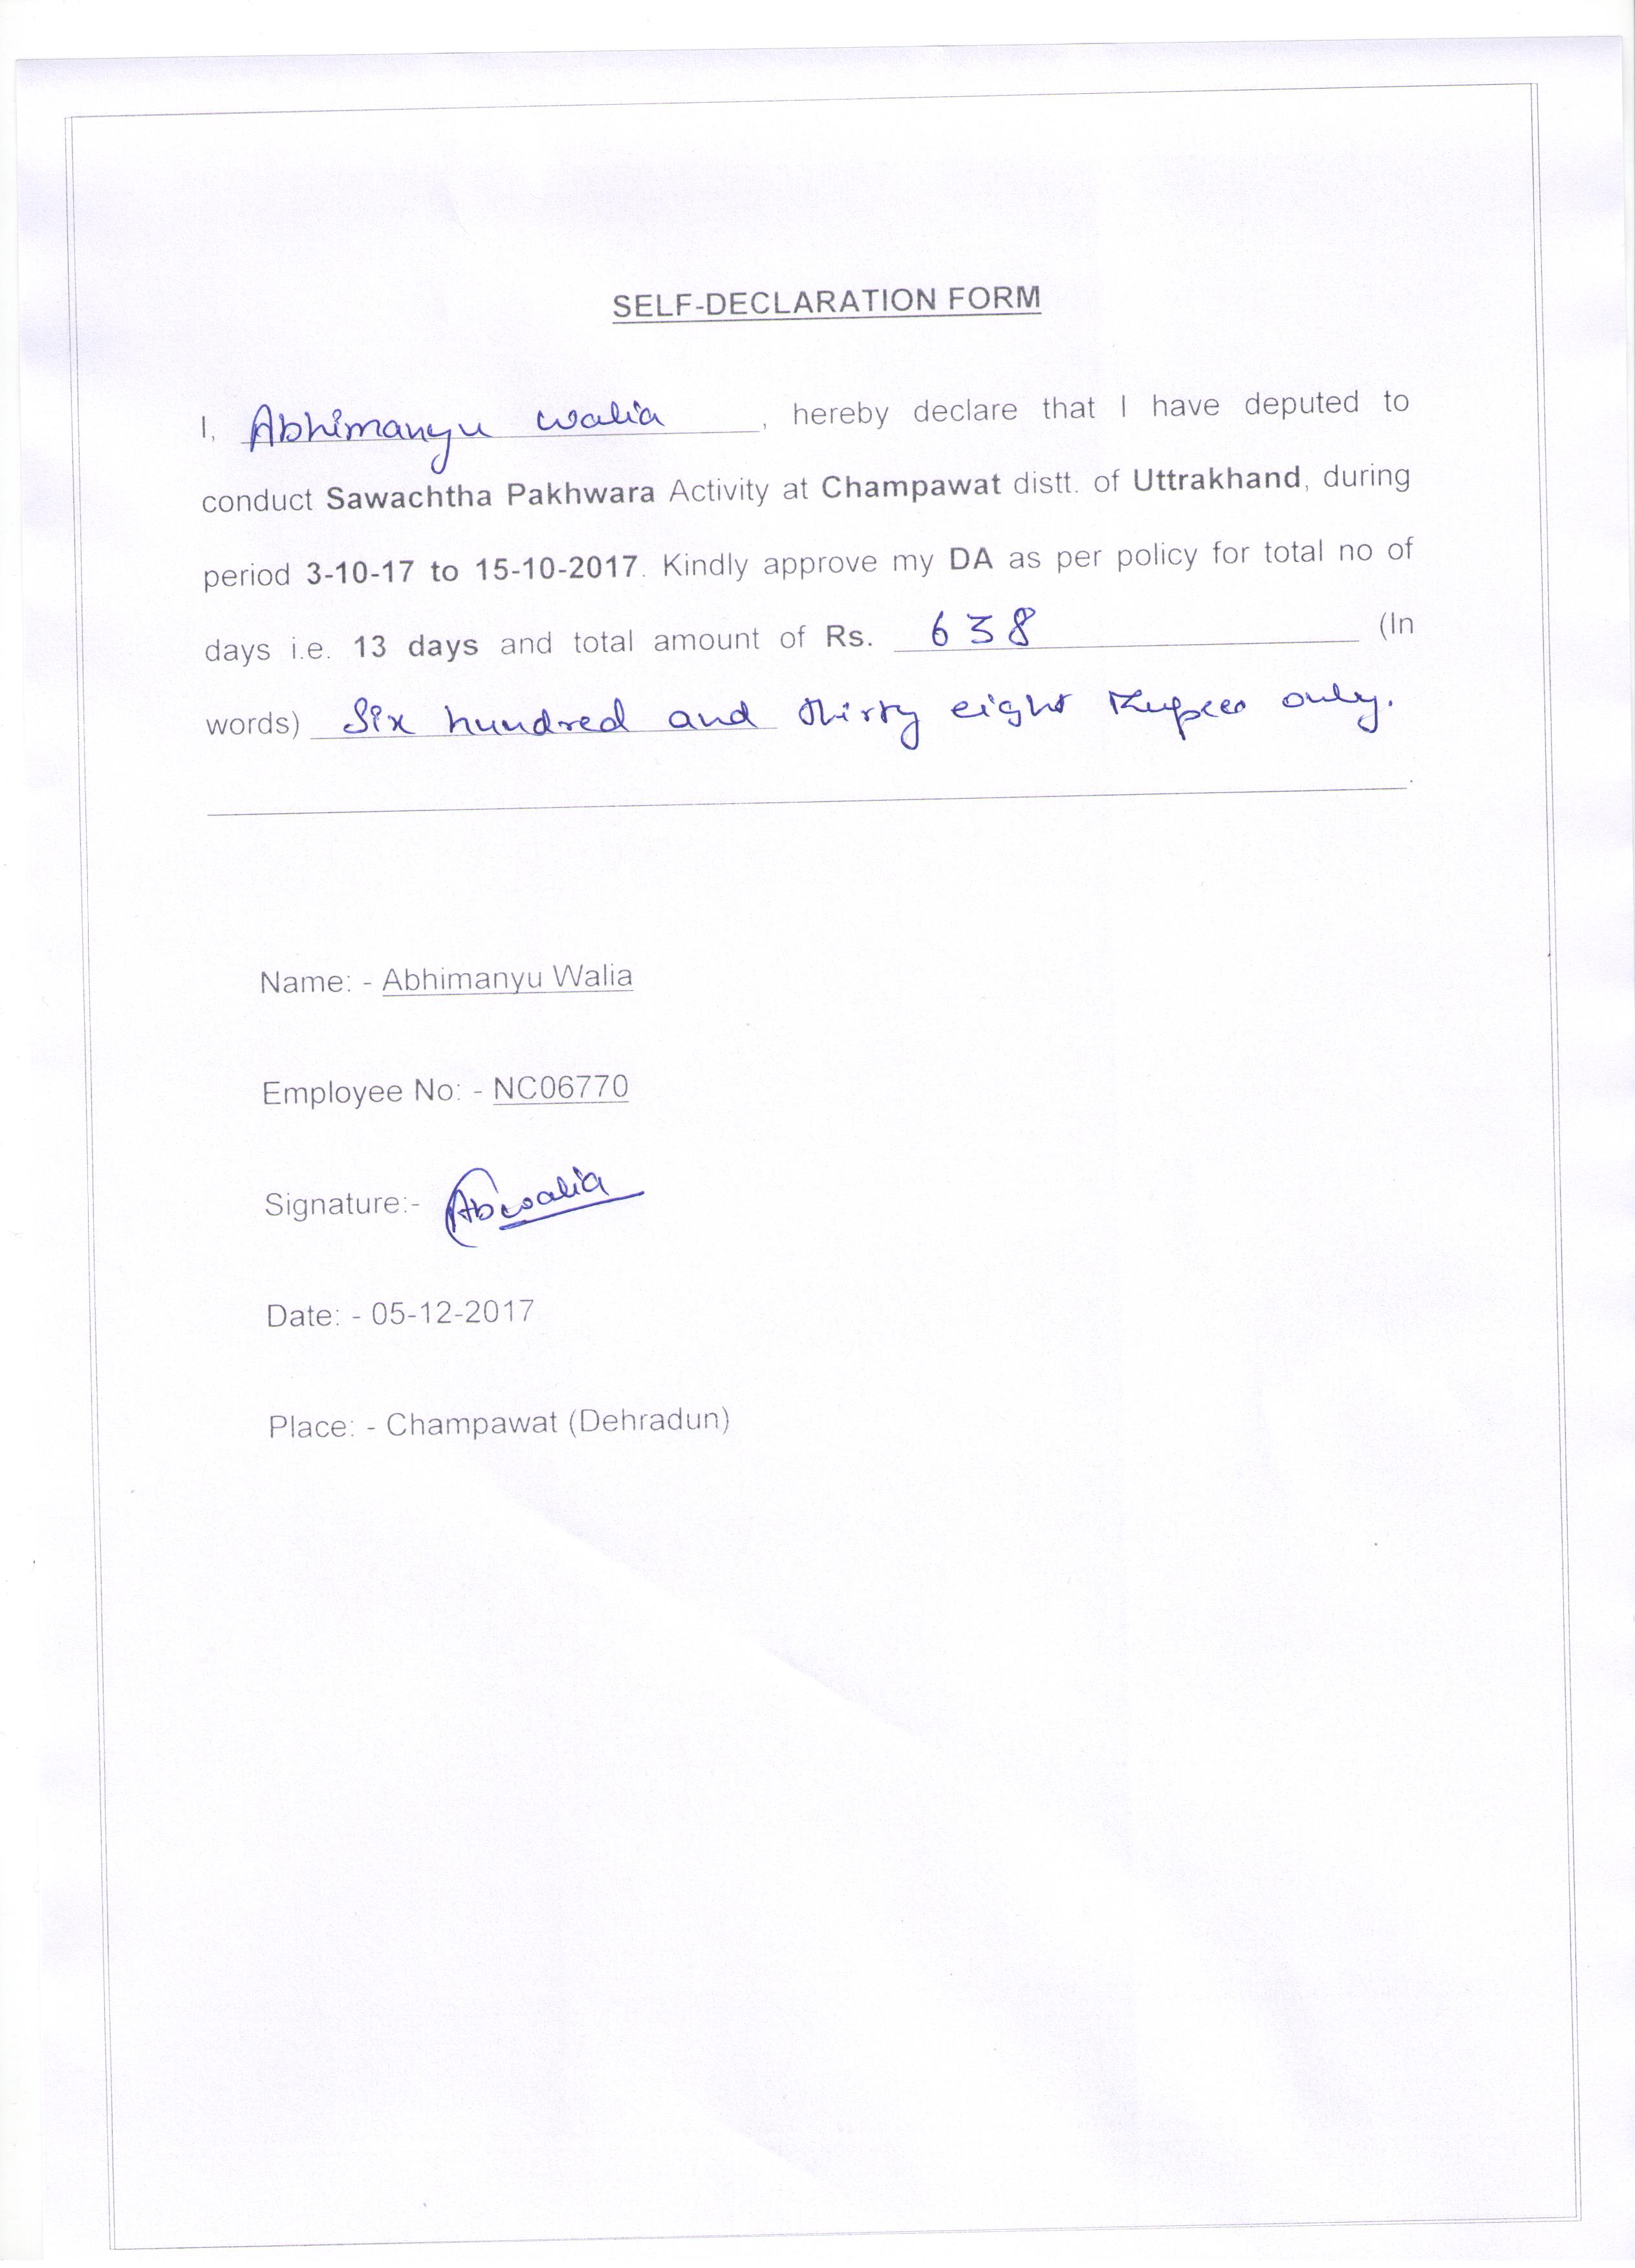 SELF-DECLARATION FORM
I, Abhimanyu Walia, hereby declare that I have deputed to
conduct Sawachtha Pakhwara Activity at Champawat distt. of Uttrakhand, during
period 3-10-17 to 15-10-2017. Kindly approve my DA as per policy for total no of
days i.e. 13 days and total amount of Rs. 638 (In
words) Six hundred and thirty eight Rupees only.
Name: - Abhimanyu Walia
Employee No: - NC06770
Signature:- Abwalia
Date: - 05-12-2017
Place: - Champawat (Dehradun)